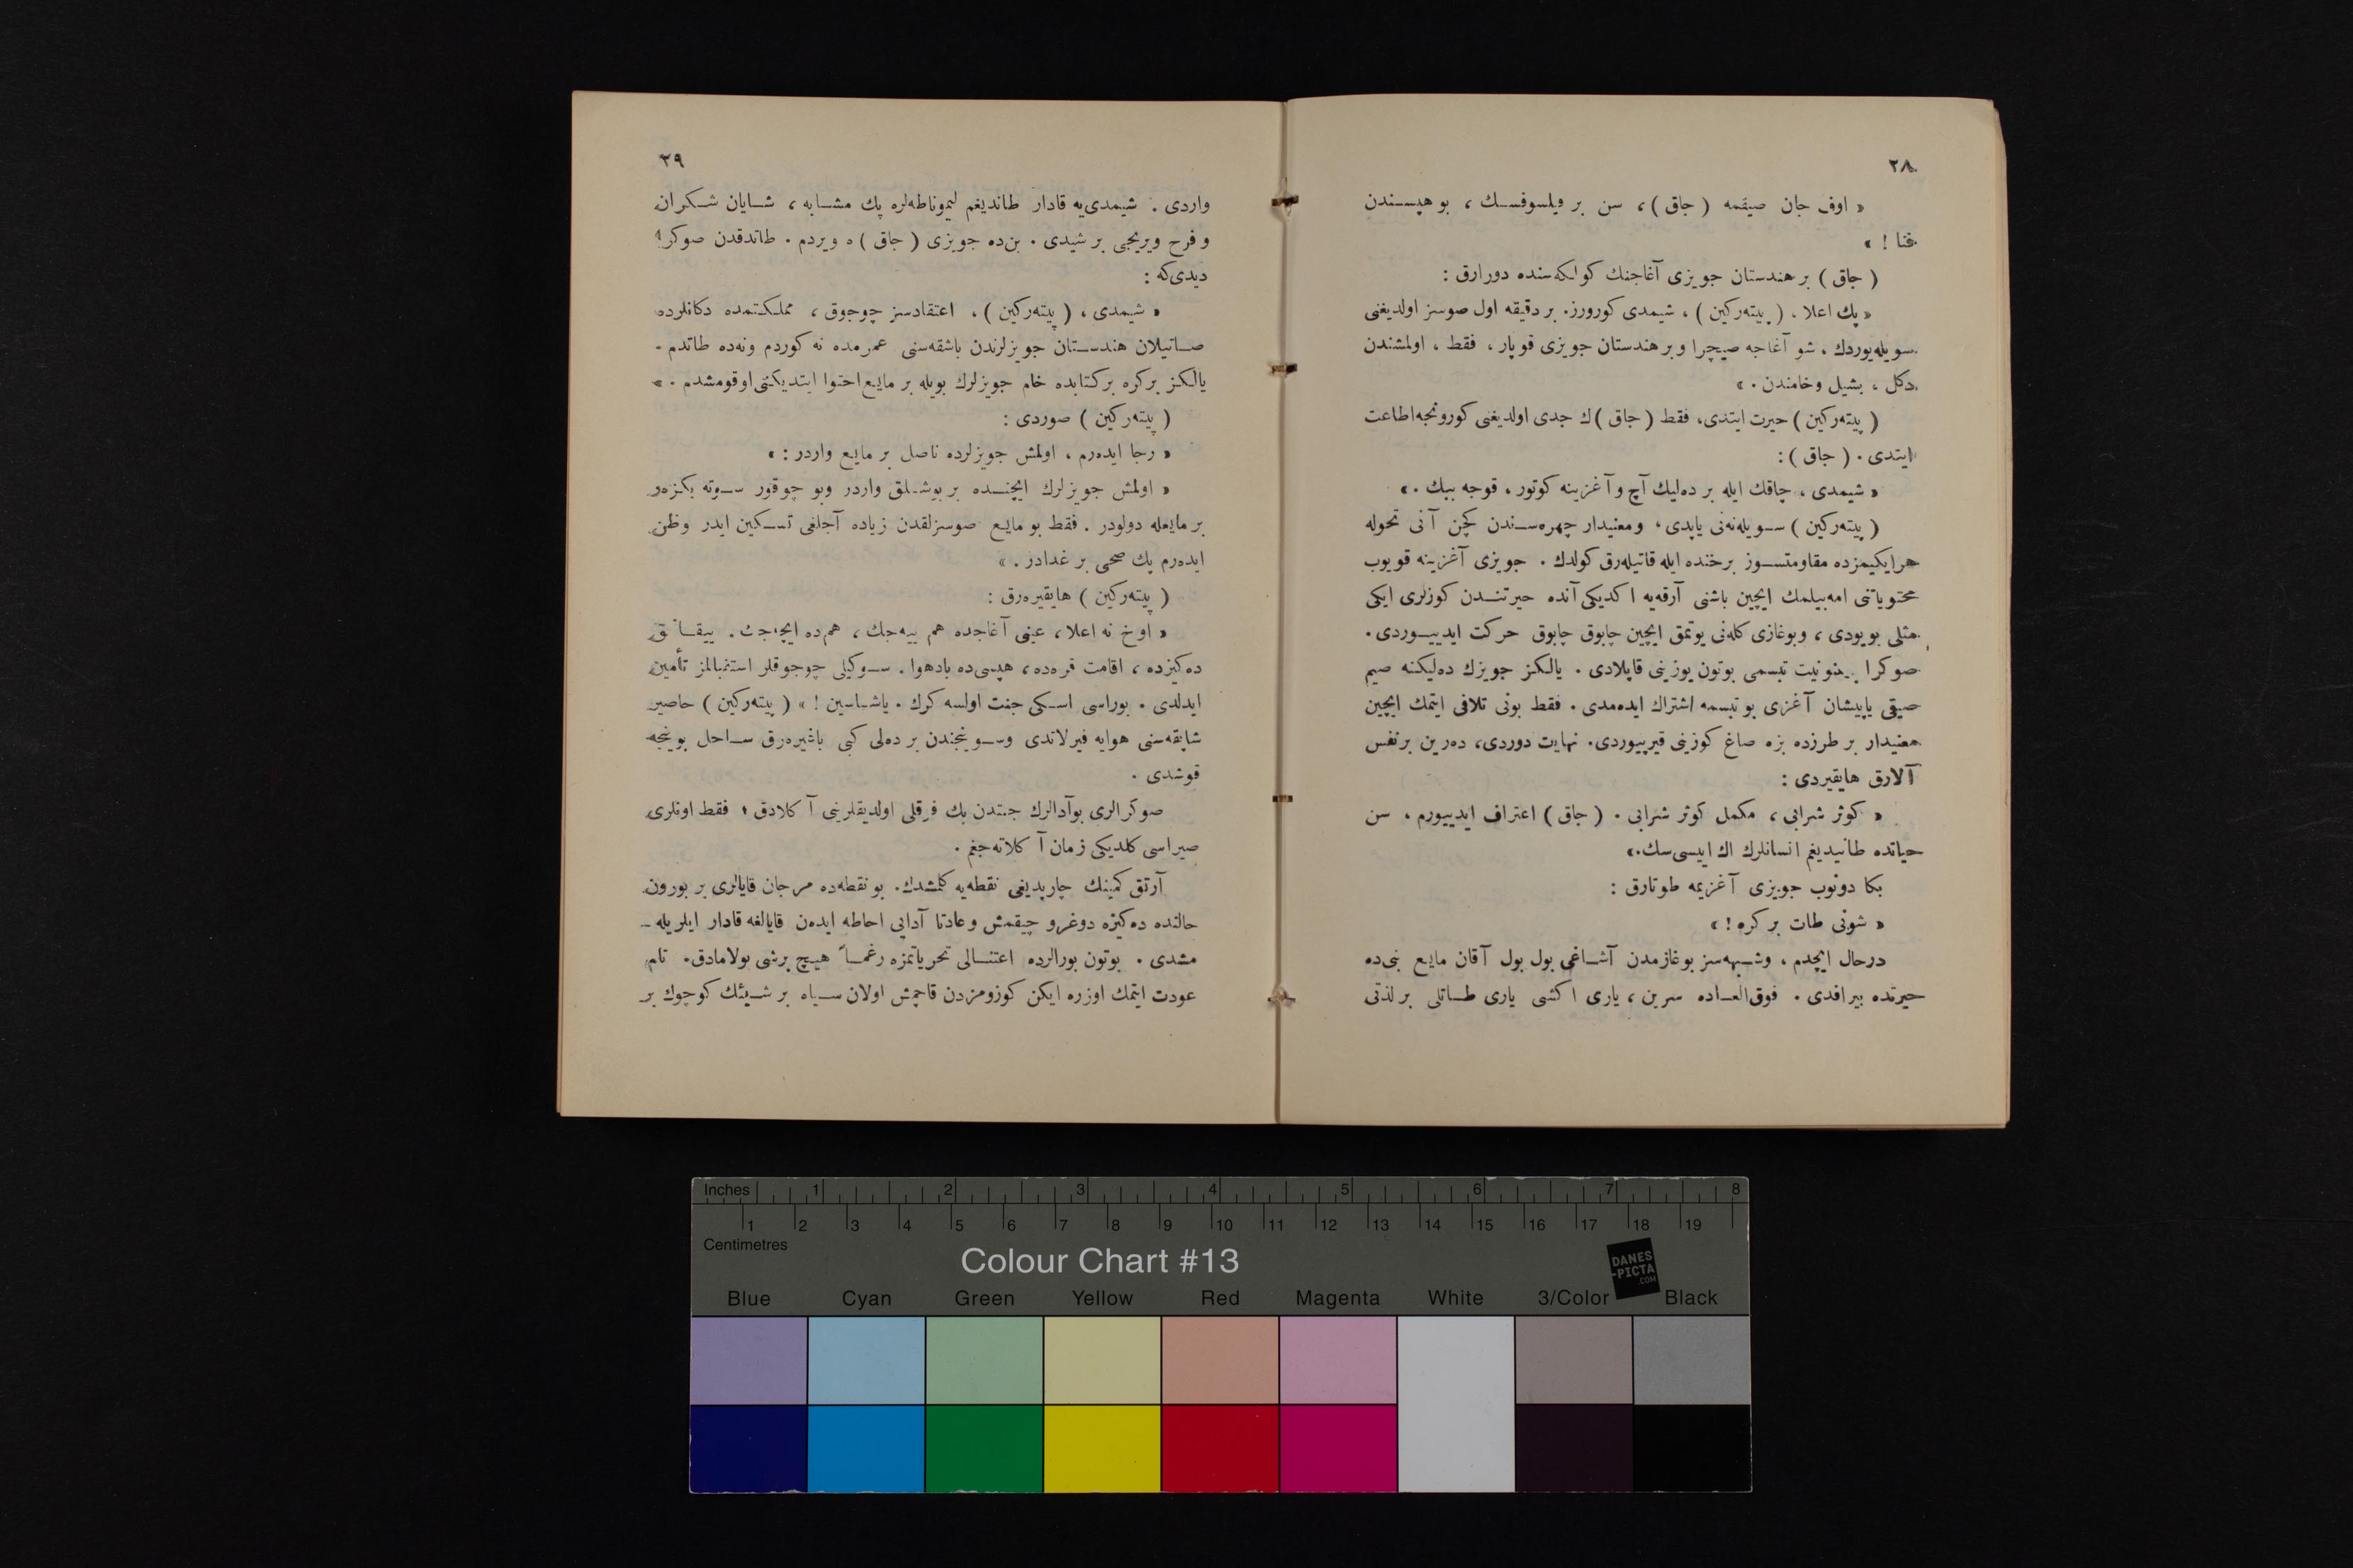 ٢٨
« اوف جان صیقمه ( جاق )، سن بر فیلسوفسك ، بو هپسندن
فنا ! »
( جاق ) بر هندستان جویزی آغاجنك کولکه‌سنده دورارق :
« پك اعلا ، ( پیته‌رکین ) ، شیمدی کورورز. بر دقیقه اول صوسز اولدیغنی
سویله‌یوردك ، شو آغاجه صیچرا و بر هندستان جویزی قوپار ، فقط ، اولمشندن
دکل ، یشیل وخامندن . »
( پیته‌رکین ) حیرت ایتدی، فقط ( جاق )ك جدی اولدیغنی کورونجه اطاعت
ایتدی . ( جاق ) :
« شیمدی ، چاقك ایله بر ده‌لیك آچ و آغزینه کوتور ، قوجه ببك . »
( پیته‌رکین ) سویله‌نه‌نی یاپدی ، ومعنیدار چهره‌سندن کچن آنی تحوله
هر ایکیمزده مقاومتسوز برخنده ایله قاتیله‌رق کولدك . جویزی آغزینه قویوب
محتویاتنی امه‌بیلمك ایچین باشنی آرقه‌یه اکدیکی آنده حیرتندن کوزلری ایکی
مثلی بویودی ، وبوغازی کله‌نی یوتمق ایچین چابوق چابوق حرکت ایدییوردی .
صوکرا ممنونیت تبسمی بوتون یوزینی قاپلادی . یالکز جویزك ده‌لیکنه صیم
صیقی یاپیشان آغزی بو تبسمه اشتراك ایده‌مدی . فقط بونی تلافی ایتمك ایچین
معنیدار بر طرزده بزه صاغ کوزینی قیرپیوردی. نهایت دوردی، ده‌رین بر نفس
آلارق هایقیردی :
« کوثر شرابی ، مکمل کوثر شرابی . ( جاق ) اعتراف ایدییورم ، سن
حیاتده طانیدیغم انسانلرك اك اییسی‌سك. »
بکا دونوب جویزی آغزیمه طوتارق :
« شونی طات بر کره ! »
درحال ایچدم ، وشبهه‌سز بوغازمدن آشاغی بول بول آقان مایع بنی‌ده
حیرتده بیراقدی . فوق‌العاده سرین ، یاری اکشی یاری طاتلی بر لذتی
٢٩
واردی . شیمدی‌یه قادار طاتدیغم لیموناطه‌لره پك مشابه ، شایان شکران
و فرح ویریجی بر شیدی . بن‌ده جویزی ( جاق )ه ویردم . طاتدقدن صوکرا
دیدی‌که :
« شیمدی ، ( پیته‌رکین ) ، اعتقادسز چوجوق ، مملکتمده دکانلرده
صاتیلان هندستان جویزلرندن باشقه‌سنی عمرمده نه کوردم ونه‌ده طاتدم .
یالکز بر کره بر کتابده خام جویزلرك بویله بر مایع احتوا ایتدیکنی اوقومشدم . »
( پیته‌رکین ) صوردی :
« رجا ایده‌رم ، اولمش جویزلرده ناصل بر مایع واردر : »
« اولمش جویزلرك ایچنده بر بوشلق واردر وبو چوقور سوته بکزه‌ر
بر مایعله دولودر . فقط بو مایع صوسزلقدن زیاده آجلغی تسکین ایدر وظن
ایده‌رم پك صحی بر غدادر . »
( پیته‌رکین ) هایقیره‌رق :
« اوخ نه اعلا ، عینی آغاجده هم ییه‌جك ، هم‌ده ایچه‌جك . ییقانمق
ده‌کیزده ، اقامت قره‌ده ، هپسی‌ده بادهوا . سوکیلی چوجوقلر استقبالمز تأمین
ایدلدی . بوراسی اسکی جنت اولسه کرك . یاشاسین ! » ( پیته‌رکین ) حاصیر
شاپقه‌سنی هوایه فیرلاتدی وسوینجندن بر ده‌لی کبی باغیره‌رق ساحل بوینجه
قوشدی .
صوکرالری بوآدالرك جنتدن پك فرقلی اولدیقلرینی آکلادق ؛ فقط اونلری
صیراسی کلدیکی زمان آکلاته‌جغم .
آرتق کمینك چارپدیغی نقطه‌یه کلمشدك. بو نقطه‌ده مرجان قایالری بر بورون
حالنده ده‌کیزه دوغرو چیقمش وعادتا آدایی احاطه ایده‌ن قایالغه قادار ایلریله‌ـ
مشدی . بوتون بورالرده اعتنالی تحریاتمزه رغماً هیچ برشی بولامادق. تام
عودت ایتمك اوزره ایکن کوزومزدن قاچمش اولان سیاه بر شیئك کوچوك بر
Inches 1 2 3 4 5 6 7 8
1 2 3 4 5 6 7 8 9 10 11 12 13 14 15 16 17 18 19
Centimetres
Colour Chart #13
DANES
-PICTA
.COM
Blue Cyan Green Yellow Red Magenta White 3/Color Black